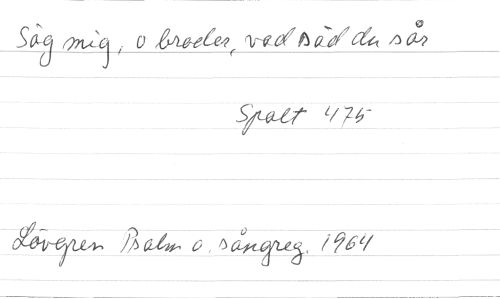 Säg mig, o broder, vad säd du sår
Spalt 475
Lövgren Psalm o. sångreg. 1964